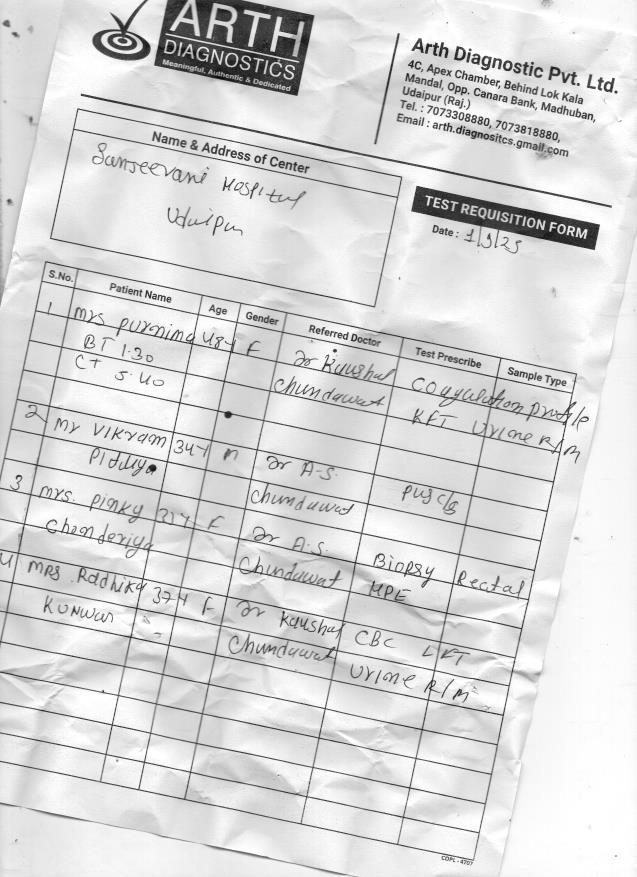 ARTH
DIAGNOSTICS
Meaningful, Authentic & Dedicated
Arth Diagnostic Pvt. Ltd.
4C, Apex Chamber, Behind Lok Kala
Mandal, Opp. Canara Bank, Madhuban,
Udaipur (Raj.)
Tel. : 7073308880, 7073818880,
Email : arth.diagnositcs.gmail.com
Name & Address of Center
Sanjeevani Hospital
Udaipur
TEST REQUISITION FORM
Date : 1/9/25
S.No. Patient Name Age Gender Referred Doctor Test Prescribe Sample Type
1 Mrs purnima 48Y F Dr Kaushal Coagulation profile
BT 1:30 Chundawat KFT Urione R/M
CT 5:40
2 Mr Vikram 34Y M Dr A-S.
Chundawat PUS C/S
3 Mrs. Pinky F Dr A.S. Biopsy Rectal
Chanderiya Chundawat HPE
4 Mrs. Radhika 32Y F Dr Kaushal CBC LFT
Kunwar Chundawat Urione R/M
CDPL - 4707